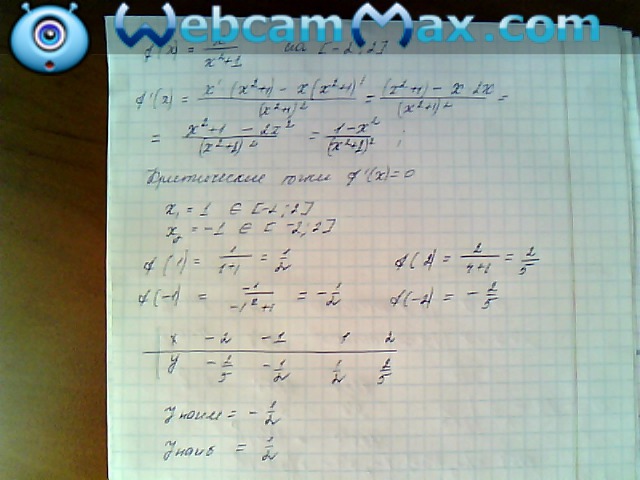 WebcamMax.com
f(x) = x/(x²+1) на [-2; 2]
f'(x) = (x'(x²+1) - x(x²+1)')/(x²+1)² = ((x²+1) - x 2x)/(x²+1)² =
= (x²+1 - 2x²)/(x²+1)² = (1-x²)/(x²+1)² ;
Критические точки f'(x)=0
x₁ = 1 ∈ [-2; 2]
x₂ = -1 ∈ [-2; 2]
f(1) = 1/(1+1) = 1/2 f(2) = 2/(4+1) = 2/5
f(-1) = -1/(-1²+1) = -1/2 f(-2) = -2/5
x -2 -1 1 2
y -2/5 -1/2 1/2 2/5
y наим = -1/2
y наиб = 1/2